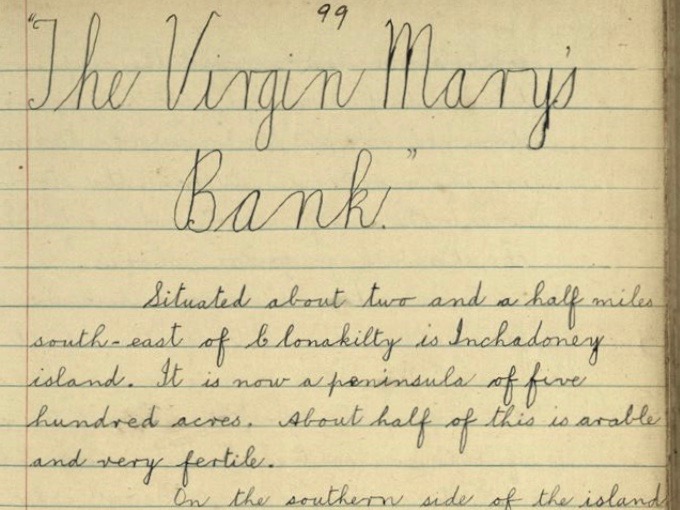 99
"The Virgin Mary's
Bank."
Situated about two and a half miles
south-east of Clonakilty is Inchadoney
island. It is now a peninsula of five
hundred acres. About half of this is arable
and very fertile.
On the southern side of the island